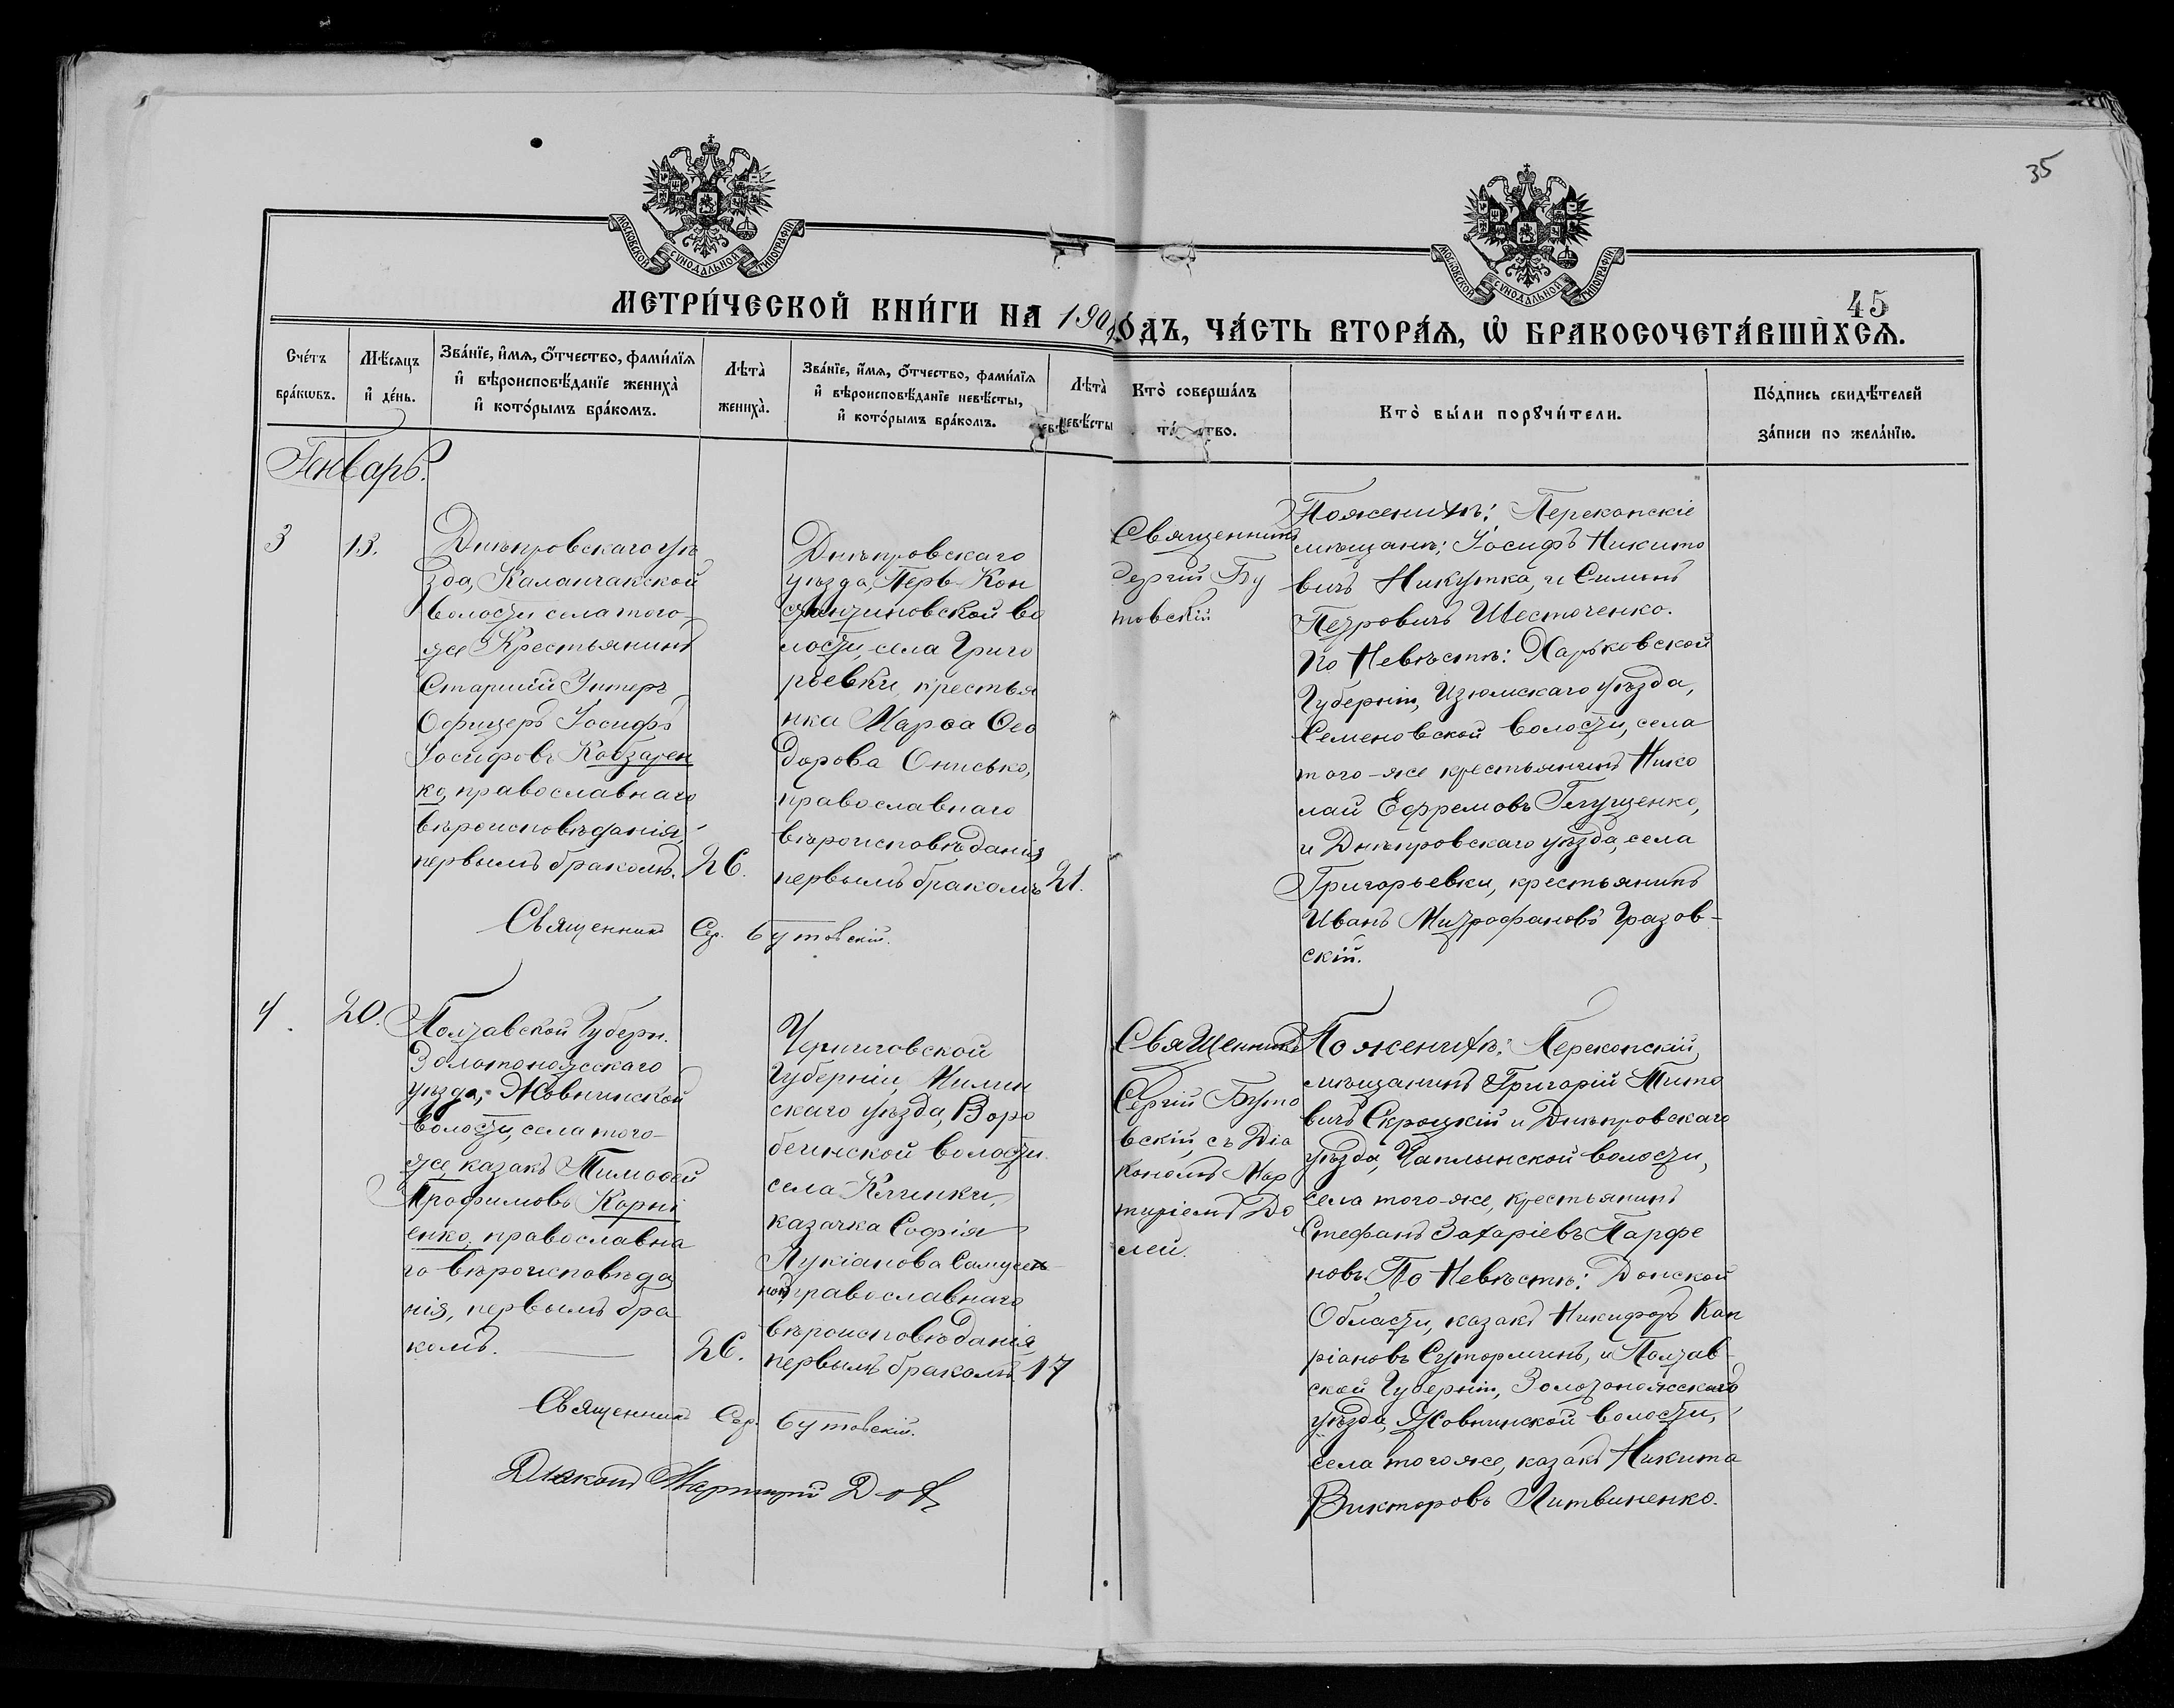 35
МОСКОВСКОЙ СѴНОДАЛЬНОЙ ТИПОГРАФІИ
МОСКОВСКОЙ СѴНОДАЛЬНОЙ ТИПОГРАФІИ
45
МЕТРИ́ЧЕСКОЙ КНИ́ГИ НА 190 ОДЪ, ЧА́СТЬ ВТОРА́Ѧ, Ѡ БРАКОСОЧЕТА́ВШИХСѦ.
Сче́тъ бра́кѡвъ.
Мѣ́сяцъ и҆ де́нь.
Зва́нїе, и҆́мѧ, ѻ҆́тчество, фамилїѧ
и҆ вѣроисповѣ́данїе жениха̀
и҆ кото́рымъ бра́комъ.
Лѣта̀ жениха̀.
Зва́нїе, и҆́мѧ, ѻ҆́тчество, фамилїѧ
и҆ вѣроисповѣ́данїе невѣ́сты,
и҆ кото́рымъ бра́комъ.
Лѣта̀ невѣ́сты
Кто̀ соверша́лъ
та́ ство.
Кто̀ бы́ли порꙋчи́тели.
По́дпись свидѣ́телей
за́писи по жела́нїю.
Январь.
3
13.
Днѣпровскаго уѣ
зда, Каланчакской
волости села того-
же Крестьянинъ
Старшій Унтеръ
Офицеръ Іосифъ
Іосифовъ Кобзарен
ко, православнаго
вѣроисповѣданія,
первымъ бракомъ.
26.
Днѣпровскаго
уѣзда, Перв-Кон
стантиновской во
лости, села Григо
рьевки, крестья
нка Марѳа Ѳео
дорова Онисько,
православнаго
вѣроисповѣданія
первымъ бракомъ
21.
Священникъ
Сергій Бу
товскій
По женихѣ: Перекопскіе
мѣщане: Іосифъ Никито
вичъ Никутка, и Симонъ
Петровичъ Шесточенко.
По Невѣстѣ: Харьковской
Губерніи, Изюмскаго уѣзда,
Семеновской волости, села
того-же крестьянинъ Нико
лай Ефремовъ Глущенко,
и Днѣпровскаго уѣзда, села
Григорьевки, крестьянинъ
Иванъ Митрофановъ Гразов-
скій.
Священникъ Сер. Бутовскій.
4.
20.
Полтавской Губерн.
Золотоношскаго
уѣзда, Жовнинской
волости, села того-
же, казакъ Тимоѳей
Трофимовъ Корні
енко, православна
го вѣроисповѣда
нія, первымъ бра
комъ.
26.
Черниговской
Губерніи, Мглин
скаго уѣзда,
ской волости
села
казачка Софія
Лукіанова Самусен
ко, православнаго
вѣроисповѣданія
первымъ бракомъ
17
Священникъ
Сергій Буто
вскій, съ Діа
кономъ Мар
тиріемъ До
лей.
По женихѣ: Перекопскій
мѣщанинъ Григорій Тито
вичъ Скроцкій и Днѣпровскаго
уѣзда, Чаплынской волости,
села того-же, крестьянинъ
Стефанъ Захаріевъ Парфе
новъ. По Невѣстѣ: Донской
Области, казакъ Никифоръ Кип
ріановъ Сутормин, и Полтав-
ской Губерніи, Золотоношскаго
уѣзда, Жовнинской волости,
села того же, казакъ Никита
Викторовъ Литвиненко.
Священникъ Сер. Бутовскій.
Діаконъ Мартирій